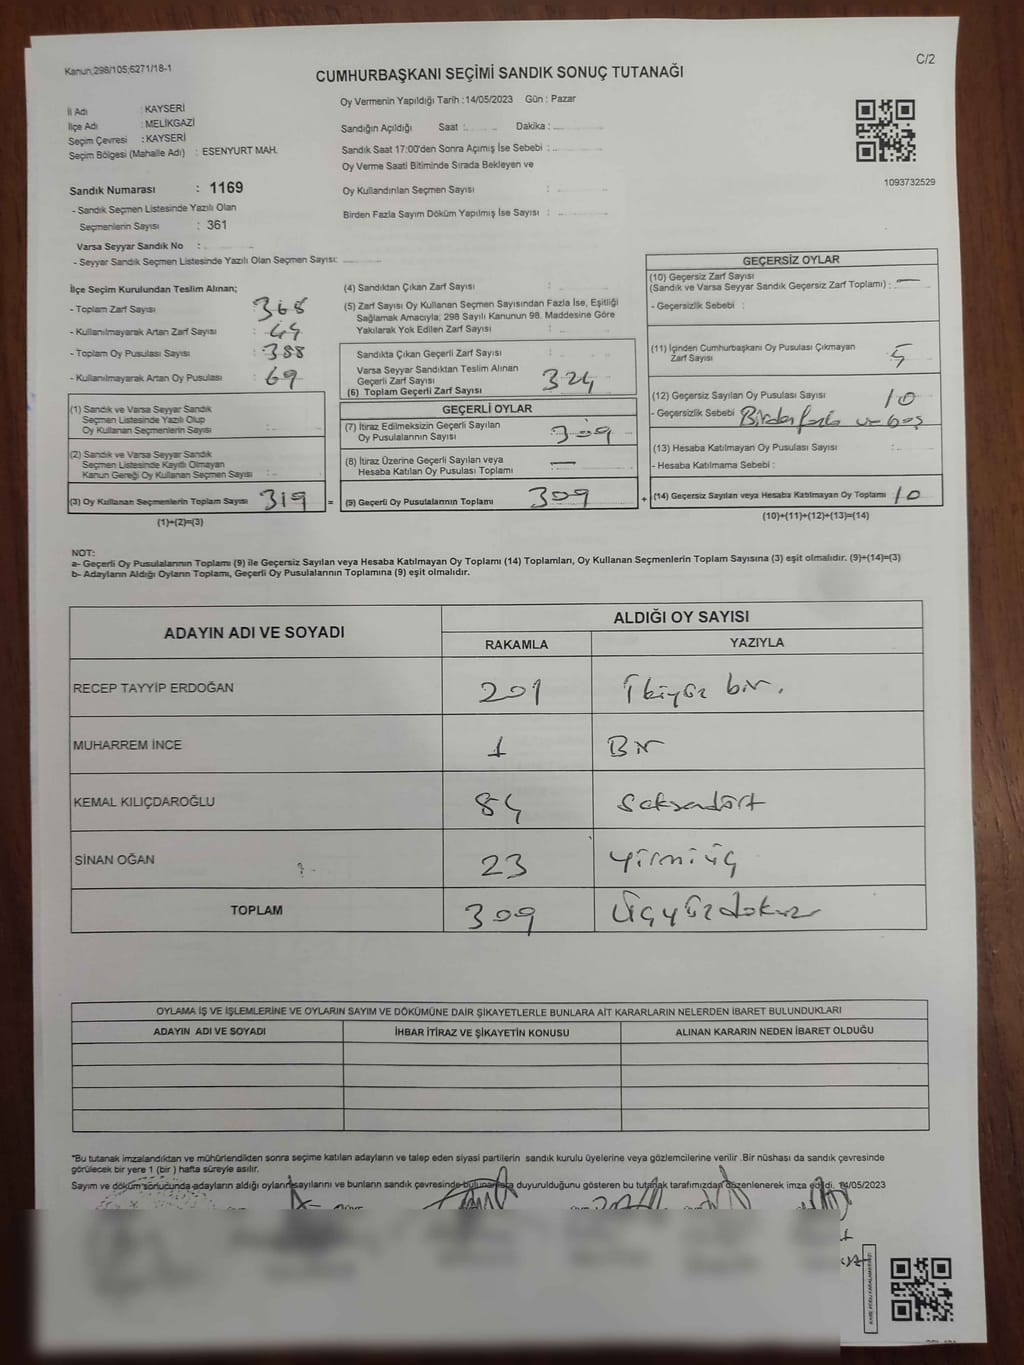 Kanun;298/105;6271/18-1
C/2
CUMHURBAŞKANI SEÇİMİ SANDIK SONUÇ TUTANAĞI
Oy Vermenin Yapıldığı Tarih :14/05/2023 Gün : Pazar
İl Adı : KAYSERİ
İlçe Adı : MELİKGAZİ
Seçim Çevresi : KAYSERİ
Seçim Bölgesi (Mahalle Adı) : ESENYURT MAH.
Sandık Numarası : 1169
- Sandık Seçmen Listesinde Yazılı Olan
Seçmenlerin Sayısı : 361
Varsa Seyyar Sandık No :
- Seyyar Sandık Seçmen Listesinde Yazılı Olan Seçmen Sayısı:
Sandığın Açıldığı Saat : Dakika :
Sandık Saat 17:00'den Sonra Açımış İse Sebebi :
Oy Verme Saati Bitiminde Sırada Bekleyen ve
Oy Kullandırılan Seçmen Sayısı :
Birden Fazla Sayım Döküm Yapılmış İse Sayısı :
1093732529
İlçe Seçim Kurulundan Teslim Alınan;
- Toplam Zarf Sayısı : 368
- Kullanılmayarak Artan Zarf Sayısı : 44
- Toplam Oy Pusulası Sayısı : 388
- Kullanılmayarak Artan Oy Pusulası : 69
(1) Sandık ve Varsa Seyyar Sandık
Seçmen Listesinde Yazılı Olup
Oy Kullanan Seçmenlerin Sayısı :
(2) Sandık ve Varsa Seyyar Sandık
Seçmen Listesinde Kayıtlı Olmayan
Kanun Gereği Oy Kullanan Seçmen Sayısı :
(3) Oy Kullanan Seçmenlerin Toplam Sayısı 319 =
(1)+(2)=(3)
(4) Sandıktan Çıkan Zarf Sayısı :
(5) Zarf Sayısı Oy Kullanan Seçmen Sayısından Fazla İse, Eşitliği
Sağlamak Amacıyla; 298 Sayılı Kanunun 98. Maddesine Göre
Yakılarak Yok Edilen Zarf Sayısı :
Sandıkta Çıkan Geçerli Zarf Sayısı :
Varsa Seyyar Sandıktan Teslim Alınan
Geçerli Zarf Sayısı :
(6) Toplam Geçerli Zarf Sayısı 324
GEÇERLİ OYLAR
(7) İtiraz Edilmeksizin Geçerli Sayılan
Oy Pusulalarının Sayısı : 309
(8) İtiraz Üzerine Geçerli Sayılan veya
Hesaba Katılan Oy Pusulası Toplamı : —
(9) Geçerli Oy Pusulalarının Toplamı 309 +
GEÇERSİZ OYLAR
(10) Geçersiz Zarf Sayısı
(Sandık ve Varsa Seyyar Sandık Geçersiz Zarf Toplamı) : —
- Geçersizlik Sebebi :
(11) İçinden Cumhurbaşkanı Oy Pusulası Çıkmayan
Zarf Sayısı : 5
(12) Geçersiz Sayılan Oy Pusulası Sayısı : 10
- Geçersizlik Sebebi Birden fazla ve boş
(13) Hesaba Katılmayan Oy Pusulası Sayısı :
- Hesaba Katılmama Sebebi :
(14) Geçersiz Sayılan veya Hesaba Katılmayan Oy Toplamı 10
(10)+(11)+(12)+(13)=(14)
NOT:
a- Geçerli Oy Pusulalarının Toplamı (9) ile Geçersiz Sayılan veya Hesaba Katılmayan Oy Toplamı (14) Toplamları, Oy Kullanan Seçmenlerin Toplam Sayısına (3) eşit olmalıdır. (9)+(14)=(3)
b- Adayların Aldığı Oyların Toplamı, Geçerli Oy Pusulalarının Toplamına (9) eşit olmalıdır.
ADAYIN ADI VE SOYADI ALDIĞI OY SAYISI
RAKAMLA YAZIYLA
RECEP TAYYİP ERDOĞAN 201 İkiyüz bir.
MUHARREM İNCE 1 Bir
KEMAL KILIÇDAROĞLU 84 Seksendört
SİNAN OĞAN 23 yirmiüç
TOPLAM 309 Üçyüzdokuz
OYLAMA İŞ VE İŞLEMLERİNE VE OYLARIN SAYIM VE DÖKÜMÜNE DAİR ŞİKAYETLERLE BUNLARA AİT KARARLARIN NELERDEN İBARET BULUNDUKLARI
ADAYIN ADI VE SOYADI İHBAR İTİRAZ VE ŞİKAYETİN KONUSU ALINAN KARARIN NEDEN İBARET OLDUĞU
"Bu tutanak imzalandıktan ve mühürlendikten sonra seçime katılan adayların ve talep eden siyasi partilerin sandık kurulu üyelerine veya gözlemcilerine verilir .Bir nüshası da sandık çevresinde
görülecek bir yere 1 (bir ) hafta süreyle asılır.
Sayım ve döküm sonucunda adayların aldığı oyların sayılarını ve bunların sandık çevresinde duyurulduğunu gösteren bu tutanak tarafımızdan düzenlenerek imza edildi. 14/05/2023